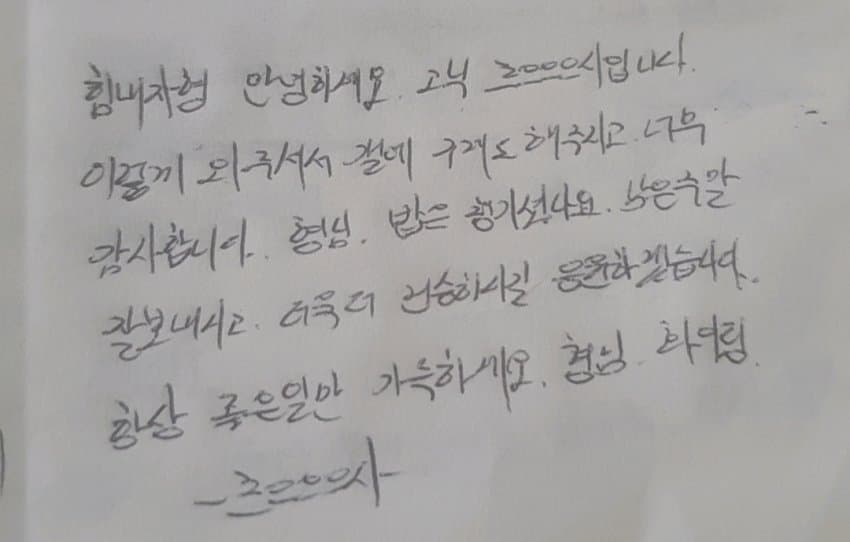 힘내자형 안녕하세요. 고닉 조OOO시입니다.
이렇게 와주셔서 걸에 구개도 해주시고. 너무
감사합니다. 형님. 밥은 챙기셨나요. 남은주말
잘보내시고. 더욱더 건승하시길 응원하겠습니다.
항상 좋은일만 가득하세요. 형님. 화이팅.